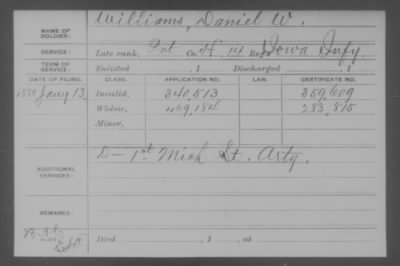 NAME OF SOLDIER: Williams, Daniel W.
SERVICE: Late rank, Pvt Co. H, 14 Reg't Iowa Infy
TERM OF SERVICE: Enlisted , 1 Discharged , 1
DATE OF FILING. CLASS. APPLICATION NO. LAW. CERTIFICATE NO.
1880 Jany 13, Invalid, 340,513 359,609
Widow, 469,184 283,815
Minor,
ADDITIONAL SERVICES: D — 1st Mich Lt. Arty.
REMARKS:
Died , 1 , at